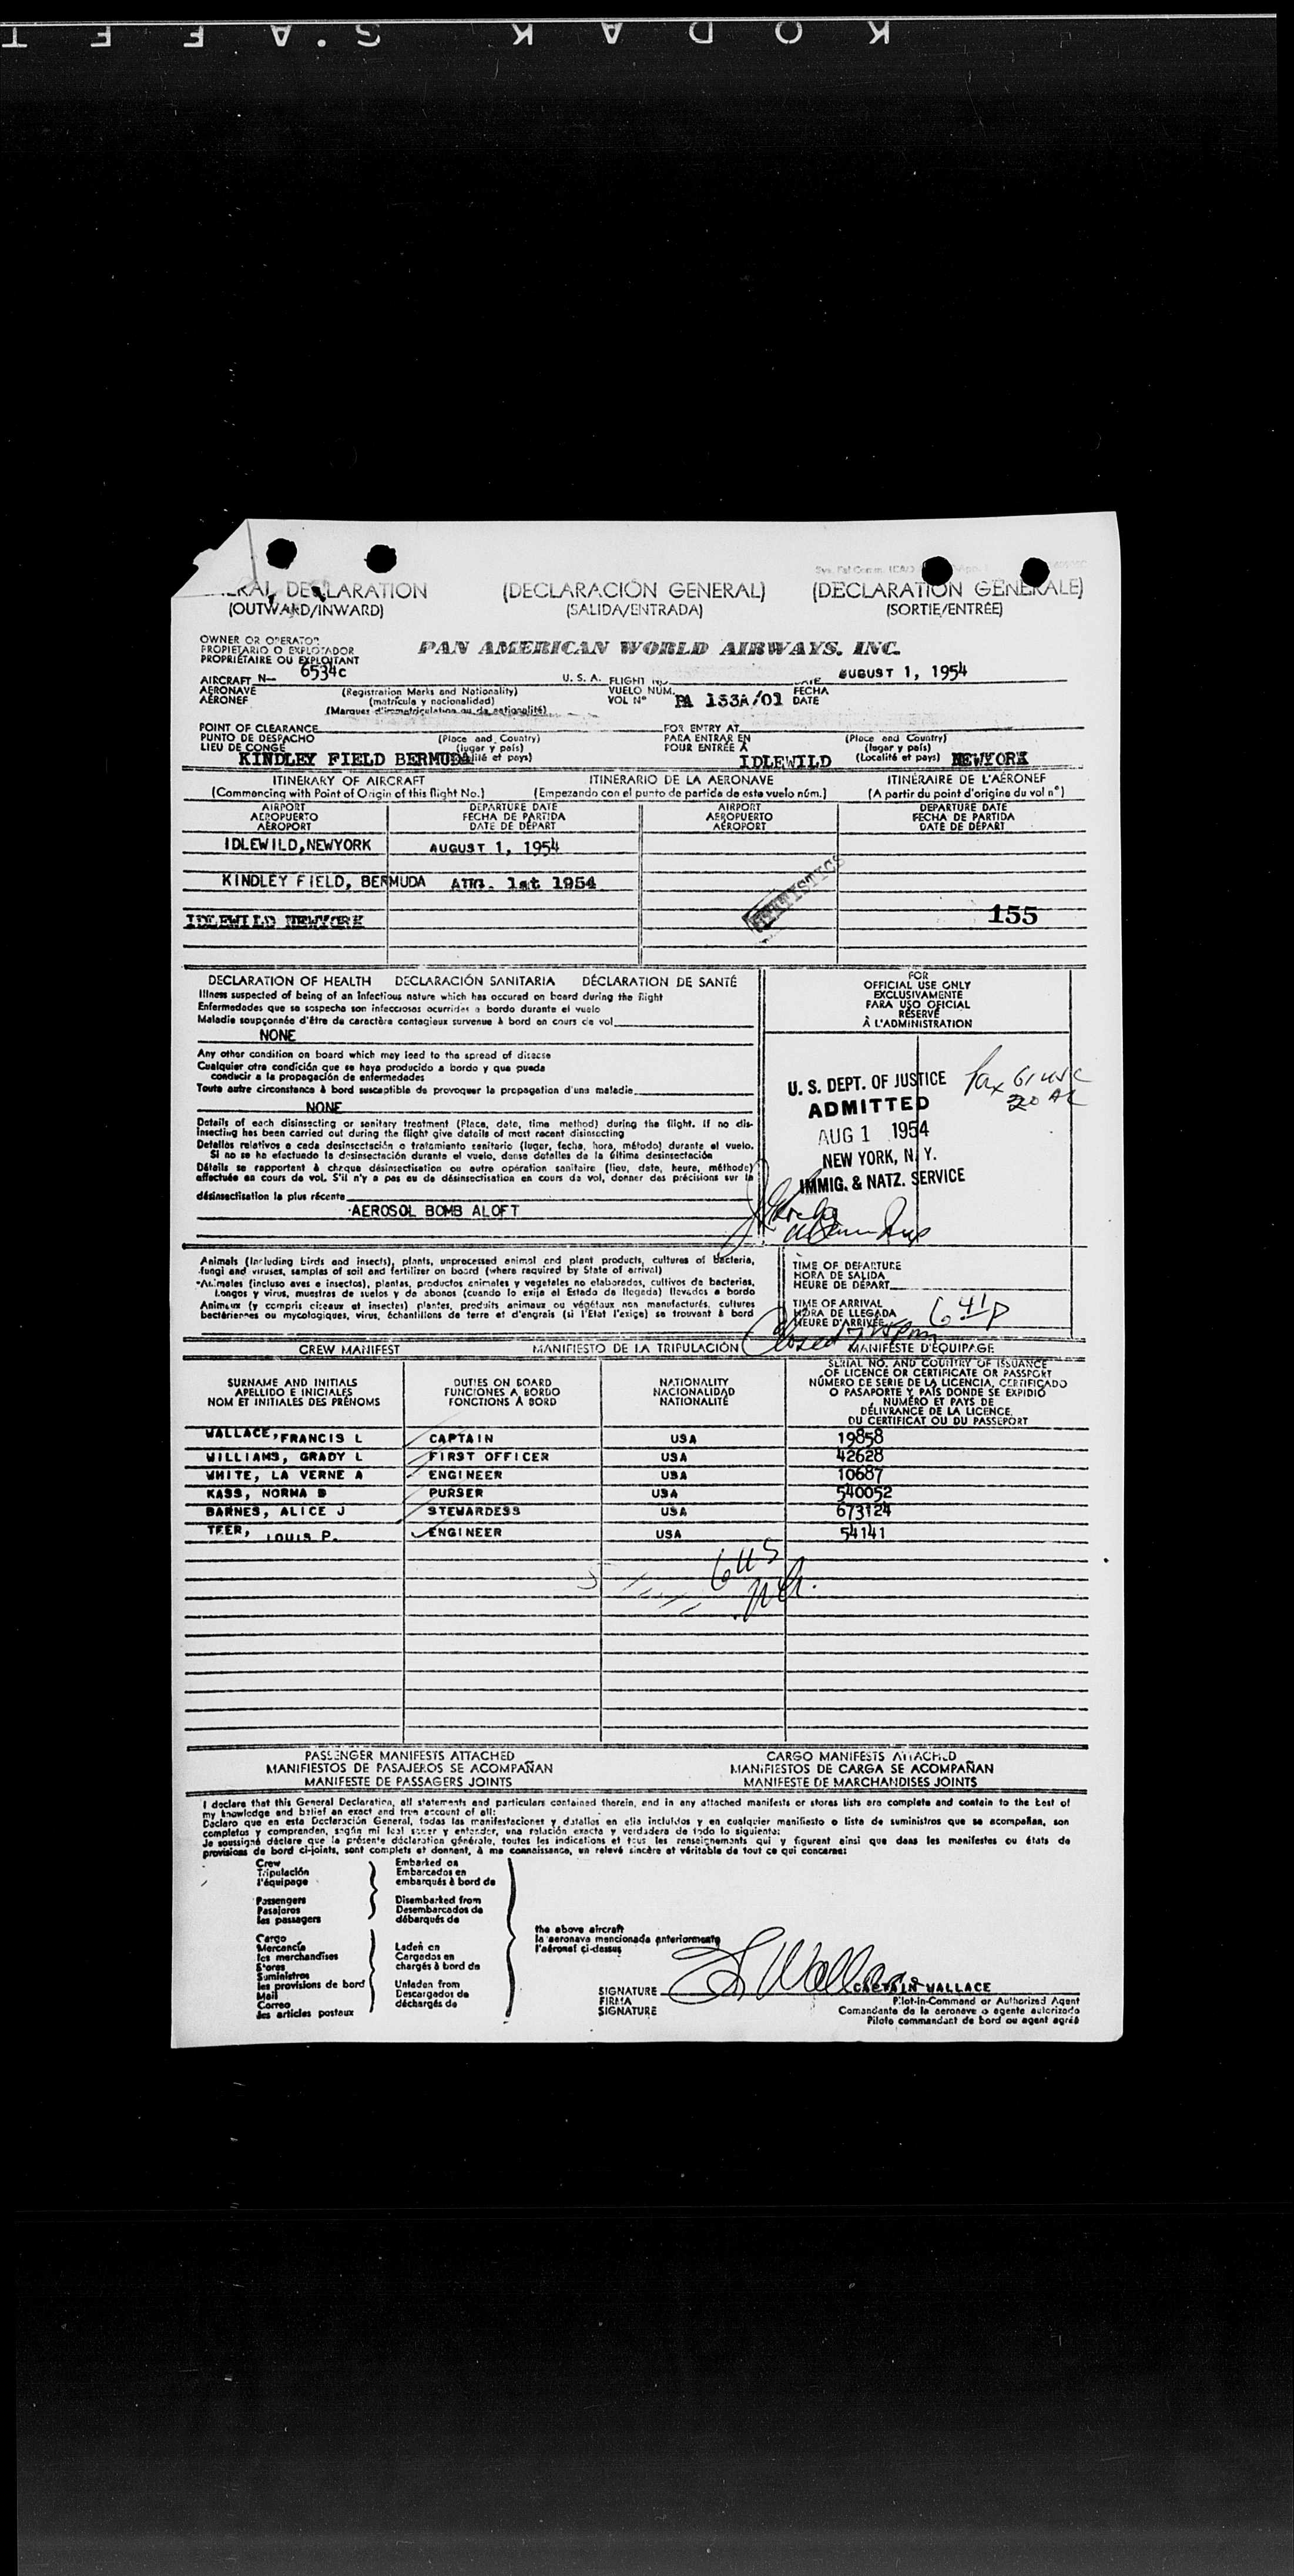 KODAK S.A F E T
ERAL DECLARATION (DECLARACIÓN GENERAL) (DECLARATION GÉNÉRALE)
(OUTWARD/INWARD) (SALIDA/ENTRADA) (SORTIE/ENTRÉE)
OWNER OR OPERATOR
PROPIETARIO O EXPLOTADOR
PROPRIÉTAIRE OU EXPLOITANT
PAN AMERICAN WORLD AIRWAYS, INC.
AIRCRAFT N- 6534C U. S. A. FLIGHT NO. DATE AUGUST 1, 1954
AERONAVE (Registration Marks and Nationality) VUELO NÚM. PA 153A/01 FECHA
AÉRONEF (matrícula y nacionalidad) VOL Nº DATE
(Marques d'immatriculation ou de nationalité)
POINT OF CLEARANCE FOR ENTRY AT
PUNTO DE DESPACHO (Place and Country) PARA ENTRAR EN (Place and Country)
LIEU DE CONGÉ (lugar y país) POUR ENTRÉE À (lugar y país)
KINDLEY FIELD BERMUDA lité et pays) IDLEWILD (Localité et pays) NEWYORK
ITINERARY OF AIRCRAFT ITINERARIO DE LA AERONAVE ITINÉRAIRE DE L'AÉRONEF
(Commencing with Point of Origin of this flight No.) (Empezando con el punto de partida de este vuelo núm.) (A partir du point d'origine du vol nº)
AIRPORT DEPARTURE DATE AIRPORT DEPARTURE DATE
AEROPUERTO FECHA DE PARTIDA AEROPUERTO FECHA DE PARTIDA
AÉROPORT DATE DE DÉPART AÉROPORT DATE DE DÉPART
IDLEWILD,NEWYORK AUGUST 1, 1954
KINDLEY FIELD, BERMUDA AUG. 1st 1954
IDLEWILD NEWYORK 155
DECLARATION OF HEALTH DECLARACIÓN SANITARIA DÉCLARATION DE SANTÉ
Illness suspected of being of an infectious nature which has occured on board during the flight
Enfermedades que se sospecha son infecciosas ocurridas a bordo durante el vuelo
Maladie soupçonnée d'être de caractère contagieux survenue à bord en cours de vol
NONE
Any other condition on board which may lead to the spread of disease
Cualquier otra condición que se haya producido a bordo y que pueda
conducir a la propagación de enfermedades
Toute autre circonstance à bord susceptible de provoquer la propagation d'une maladie
NONE
Details of each disinsecting or sanitary treatment (Place, date, time method) during the flight. If no dis-
insecting has been carried out during the flight give details of most recent disinsecting
Detalles relativos a cada desinsectación o tratamiento sanitario (lugar, fecha, hora, método) durante el vuelo.
Si no se ha efectuado la desinsectación durante el vuelo, danse detalles de la última desinsectación
Détails se rapportant à chaque désinsectisation ou autre opération sanitaire (lieu, date, heure, méthode)
effectuée en cours de vol. S'il n'y a pas eu de désinsectisation en cours de vol, donner des précisions sur la
désinsectisation la plus récente
AEROSOL BOMB ALOFT
FOR
OFFICIAL USE ONLY
EXCLUSIVAMENTE
PARA USO OFICIAL
RÉSERVÉ
À L'ADMINISTRATION
U. S. DEPT. OF JUSTICE
ADMITTED
AUG 1 1954
NEW YORK, N. Y.
IMMIG. & NATZ. SERVICE
Pax 61 USC
20 AL
Animals (Including birds and insects), plants, unprocessed animal and plant products, cultures of bacteria,
fungi and viruses, samples of soil and fertilizer on board (where required by State of arrival)
Animales (incluso aves e insectos), plantas, productos animales y vegetales no elaborados, cultivos de bacterias,
hongos y virus, muestras de suelos y de abonos (cuando lo exija el Estado de llegada) llevados a bordo
Animaux (y compris oiseaux et insectes) plantes, produits animaux ou végétaux non manufacturés, cultures
bactériennes ou mycologiques, virus, échantillons de terre et d'engrais (si l'Etat l'exige) se trouvant à bord
TIME OF DEPARTURE
HORA DE SALIDA
HEURE DE DÉPART
TIME OF ARRIVAL
HORA DE LLEGADA
HEURE D'ARRIVÉE
6 41 P
Closed
CREW MANIFEST MANIFIESTO DE LA TRIPULACIÓN MANIFESTE D'ÉQUIPAGE
SURNAME AND INITIALS
APELLIDO E INICIALES
NOM ET INITIALES DES PRÉNOMS
DUTIES ON BOARD
FUNCIONES A BORDO
FONCTIONS À BORD
NATIONALITY
NACIONALIDAD
NATIONALITÉ
SERIAL NO. AND COUNTRY OF ISSUANCE
OF LICENCE OR CERTIFICATE OR PASSPORT
NÚMERO DE SERIE DE LA LICENCIA, CERTIFICADO
O PASAPORTE Y PAÍS DONDE SE EXPIDIÓ
NUMÉRO ET PAYS DE
DÉLIVRANCE DE LA LICENCE,
DU CERTIFICAT OU DU PASSEPORT
WALLACE, FRANCIS L CAPTAIN USA 19858
WILLIAMS, GRADY L FIRST OFFICER USA 42628
WHITE, LA VERNE A ENGINEER USA 10687
KASS, NORMA B PURSER USA 540052
BARNES, ALICE J STEWARDESS USA 673124
TEER, LOUIS P. ENGINEER USA 54141
6 US
PASSENGER MANIFESTS ATTACHED CARGO MANIFESTS ATTACHED
MANIFIESTOS DE PASAJEROS SE ACOMPAÑAN MANIFIESTOS DE CARGA SE ACOMPAÑAN
MANIFESTE DE PASSAGERS JOINTS MANIFESTE DE MARCHANDISES JOINTS
I declare that this General Declaration, all statements and particulars contained therein, and in any attached manifests or stores lists are complete and contain to the best of
my knowledge and belief an exact and true account of all:
Declaro que en esta Declaración General, todas las manifestaciones y detalles en ella incluídos y en cualquier manifiesto o lista de suministros que se acompañan, son
completos y comprenden, según mi leal saber y entender, una relación exacta y verdadera de todo lo siguiente:
Je soussigné déclare que la présente déclaration générale, toutes les indications et tous les renseignements qui y figurent ainsi que dans les manifestes ou états de
provisions de bord ci-joints, sont complets et donnent, à ma connaissance, un relevé sincère et véritable de tout ce qui concerne:
Crew Embarked on
Tripulación Embarcados en
l'équipage embarqués à bord de
Passengers Disembarked from
Pasajeros Desembarcados de
les passagers débarqués de
Cargo
Mercancía Laden on
les marchandises Cargados en
Stores chargés à bord de
Suministros
les provisions de bord Unladen from
Mail Descargados de
Correo déchargés de
les articles postaux
the above aircraft
la aeronava mencionada anteriormente
l'aéronef ci-dessus
SIGNATURE F L Wallace CAPTAIN WALLACE
FIRMA Pilot-in-Command or Authorized Agent
SIGNATURE Comandante de la aeronave o agente autorizado
Pilote commandant de bord ou agent agréé